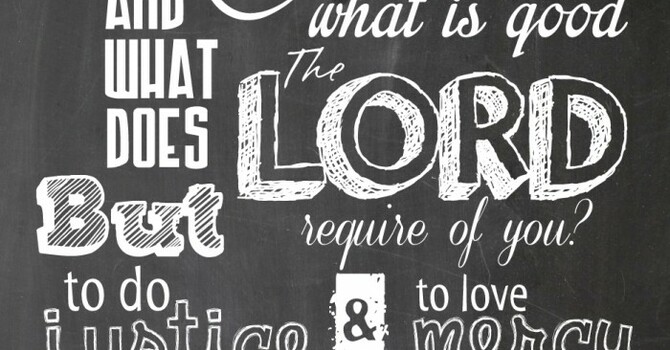 what is good
AND
WHAT
DOES
The
LORD
require of you?
But
to do
justice
&
to love
mercy